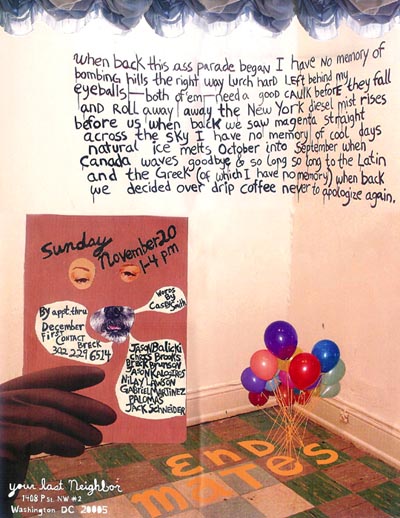 when back this ass parade began I have no memory of
bombing hills the right way lurch hard left behind my
eyeballs—both of'em—need a good caulk before they fall
and roll away / away the New York diesel mist rises
before us when back we saw magenta straight
across the sky I have no memory of cool days
natural ice melts October into September when
Canada waves goodbye & so long so long to the Latin
and the Greek (of which I have no memory) when back
we decided over drip coffee never to apologize again.
Sunday
November 20
1-4 pm
Words
By
Casey Smith
By appt. thru
December
First
Contact
Breck
302 229 6514
Jason Balicki
chris Brooks
Breck Brunson
Jason Kalogiros
Nilay Lawson
Gabriel Martinez
Palomas
Jack Schneider
End
mates
your last Neighbor
1408 P St. NW #2
Washington DC 20005